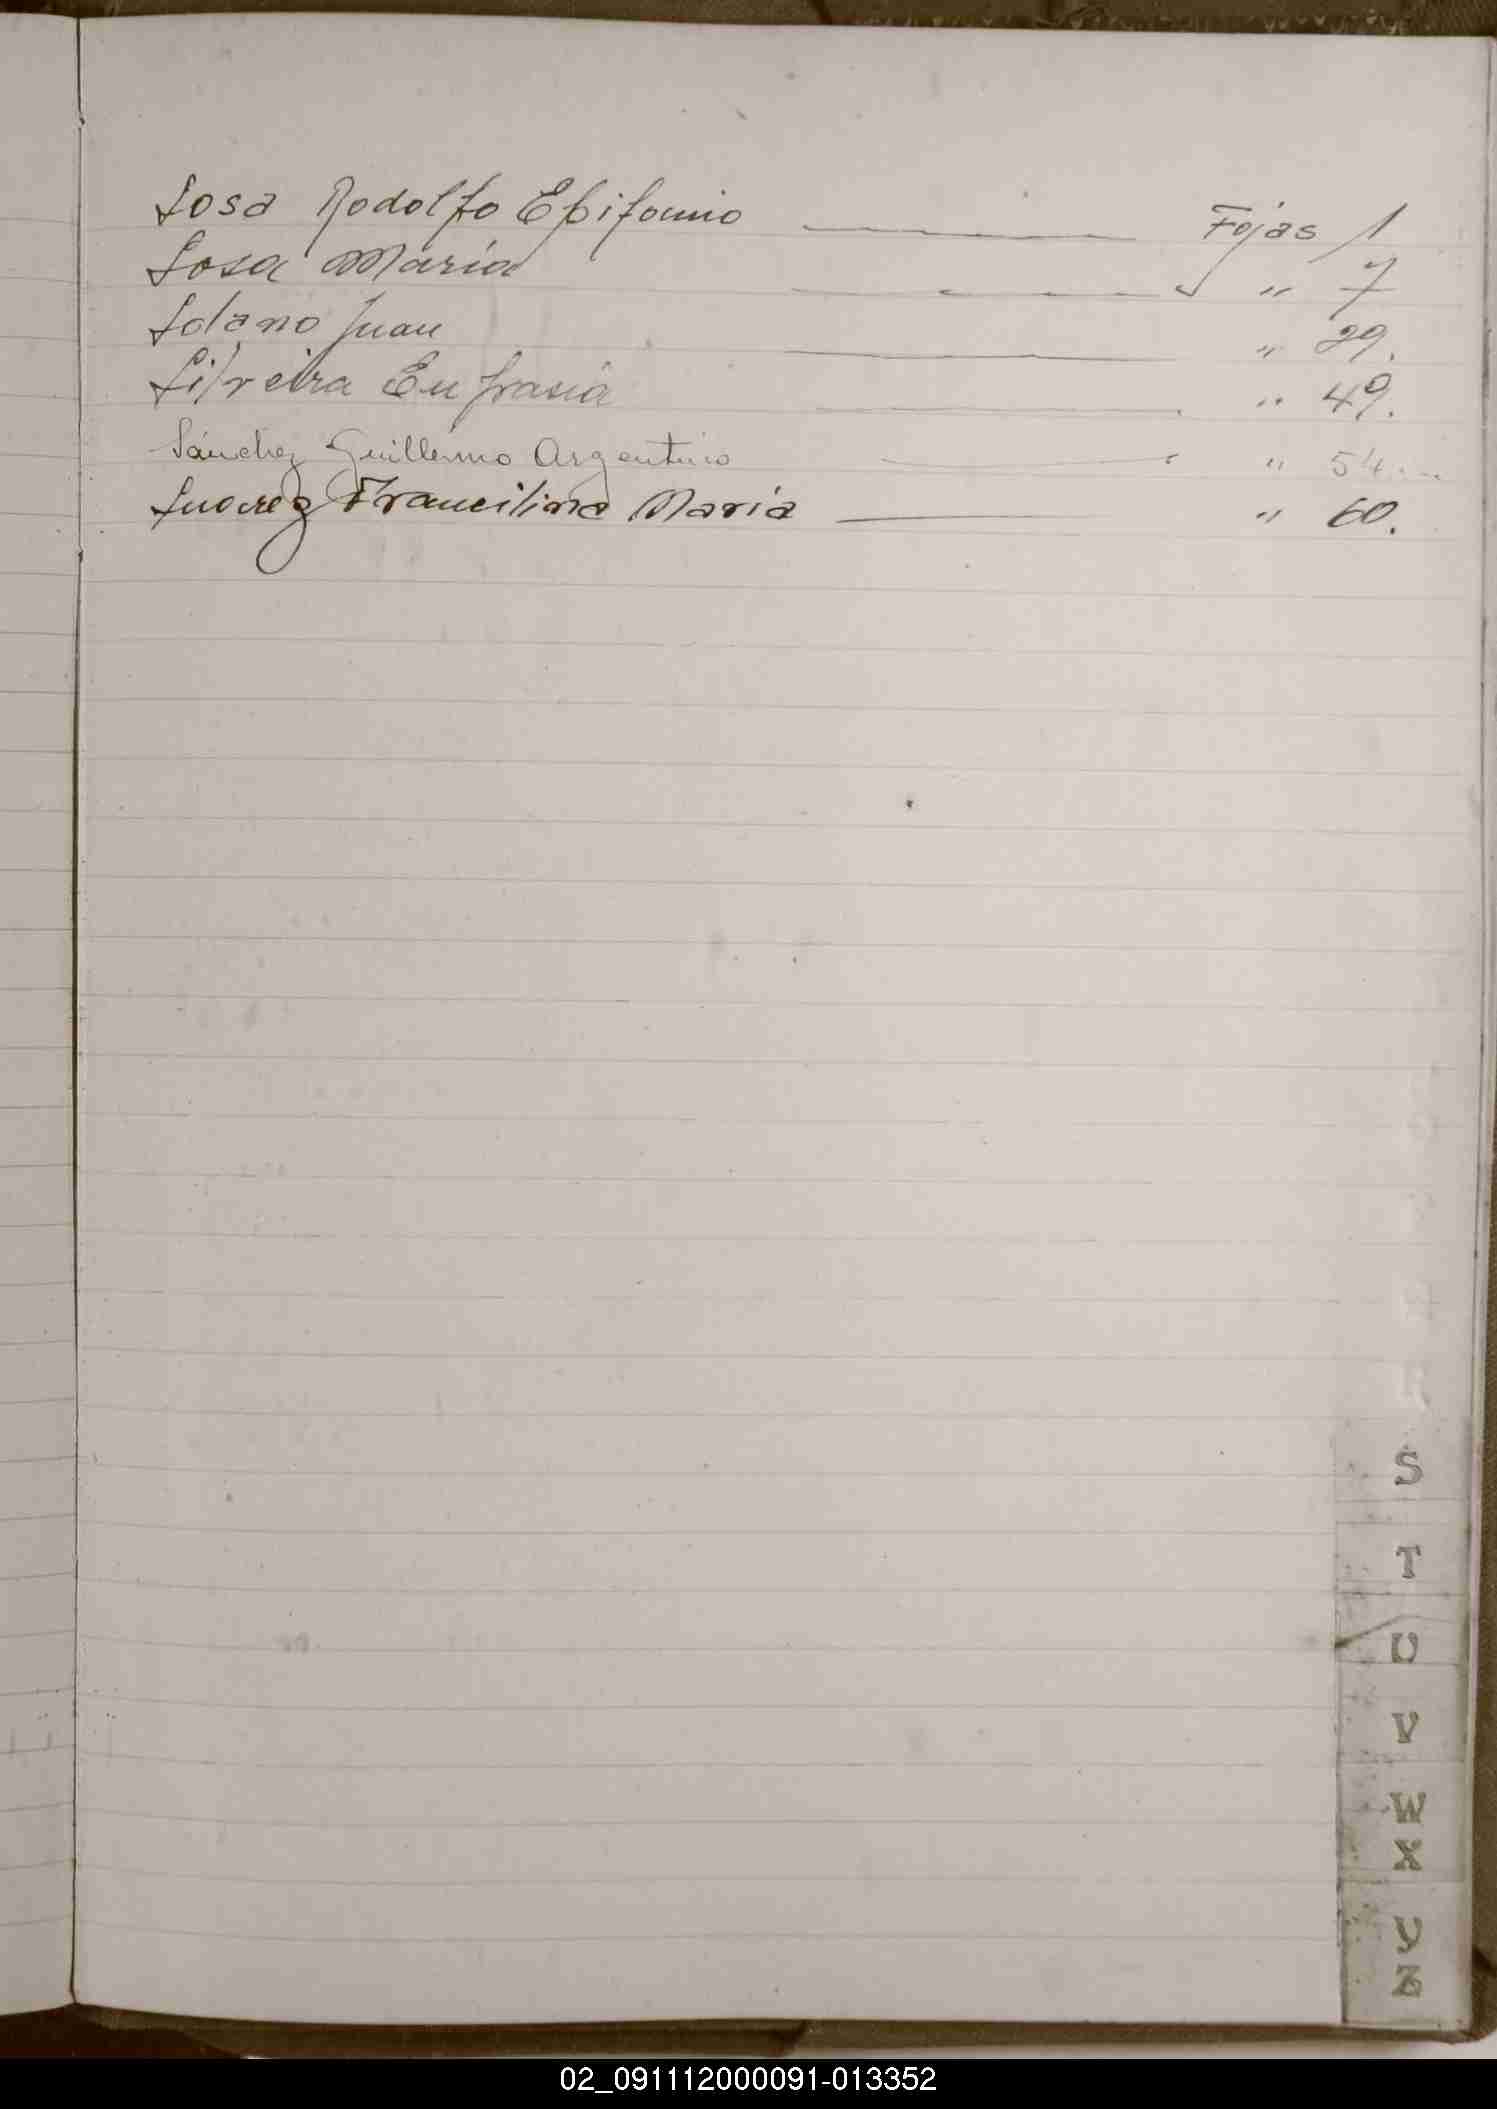 Sosa Rodolfo Epifanio Fojas 1
Sosa Maria " 7
Solano Juan " 29.
Silveira Eufrasia " 49.
Sánchez Guillermo Argentino " 54
Suarez Francilina Maria " 60.
S
T
U
V
W
X
Y
Z
02_091112000091-013352